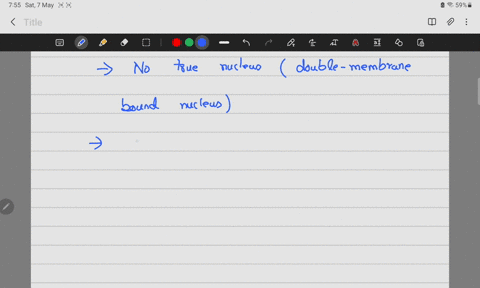 7:55 Sat, 7 May
59%
Title
→ No true nucleus ( double-membrane
bound nucleus)
→